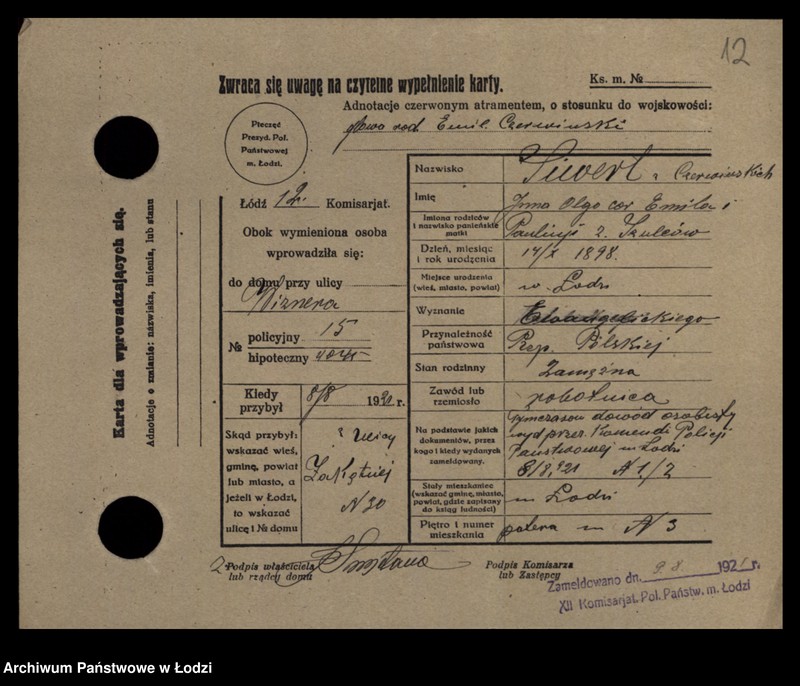 12
Zwraca się uwagę na czytelne wypełnienie karty.
Ks. m. №
Adnotacje czerwonym atramentem, o stosunku do wojskowości:
głowa rod. Emil Czerwiński
Pieczęć
Prezyd. Pol.
Państwowej
m. Łodzi.
Karta dla wprowadzających się.
Adnotacje o zmianie: nazwiska, imienia, lub stanu
Łódź 12. Komisarjat.
Obok wymieniona osoba
wprowadziła się:
do domu przy ulicy
Wiznera
№ policyjny 15
hipoteczny
Kiedy przybył 8/8 1921 r.
Skąd przybył:
wskazać wieś,
gminę, powiat
lub miasto, a
jeżeli w Łodzi,
to wskazać
ulicę i № domu
z ulicy
Zakątnej
N 30
Nazwisko Siwert z Czerwińskich
Imię Irma Olga cór. Emila i
Imiona rodziców
i nazwisko panieńskie
matki
Pauliny z Szulców
Dzień, miesiąc
i rok urodzenia
14/X 1898.
Miejsce urodzenia
(wieś, miasto, powiat)
w Łodzi
Wyznanie
Przynależność
państwowa
Rzep. Polskiej
Stan rodzinny Zamężna
Zawód lub
rzemiosło
robotnica
Na podstawie jakich
dokumentów, przez
kogo i kiedy wydanych
zameldowany.
tymczasow dowód osobisty
wyd przez Komendę Policji
Państwowej w Łodzi
8/8, 921
Stały mieszkaniec
(wskazać gminę, miasto,
powiat, gdzie zapisany
do ksiąg ludności)
w Łodzi
Piętro i numer
mieszkania
N 3
Podpis właściciela
lub rządcy domu
Podpis Komisarza
lub Zastępcy
Zameldowano dn. 9.8. 1921 r.
XII Komisarjat. Pol. Państw. m. Łodzi
Archiwum Państwowe w Łodzi